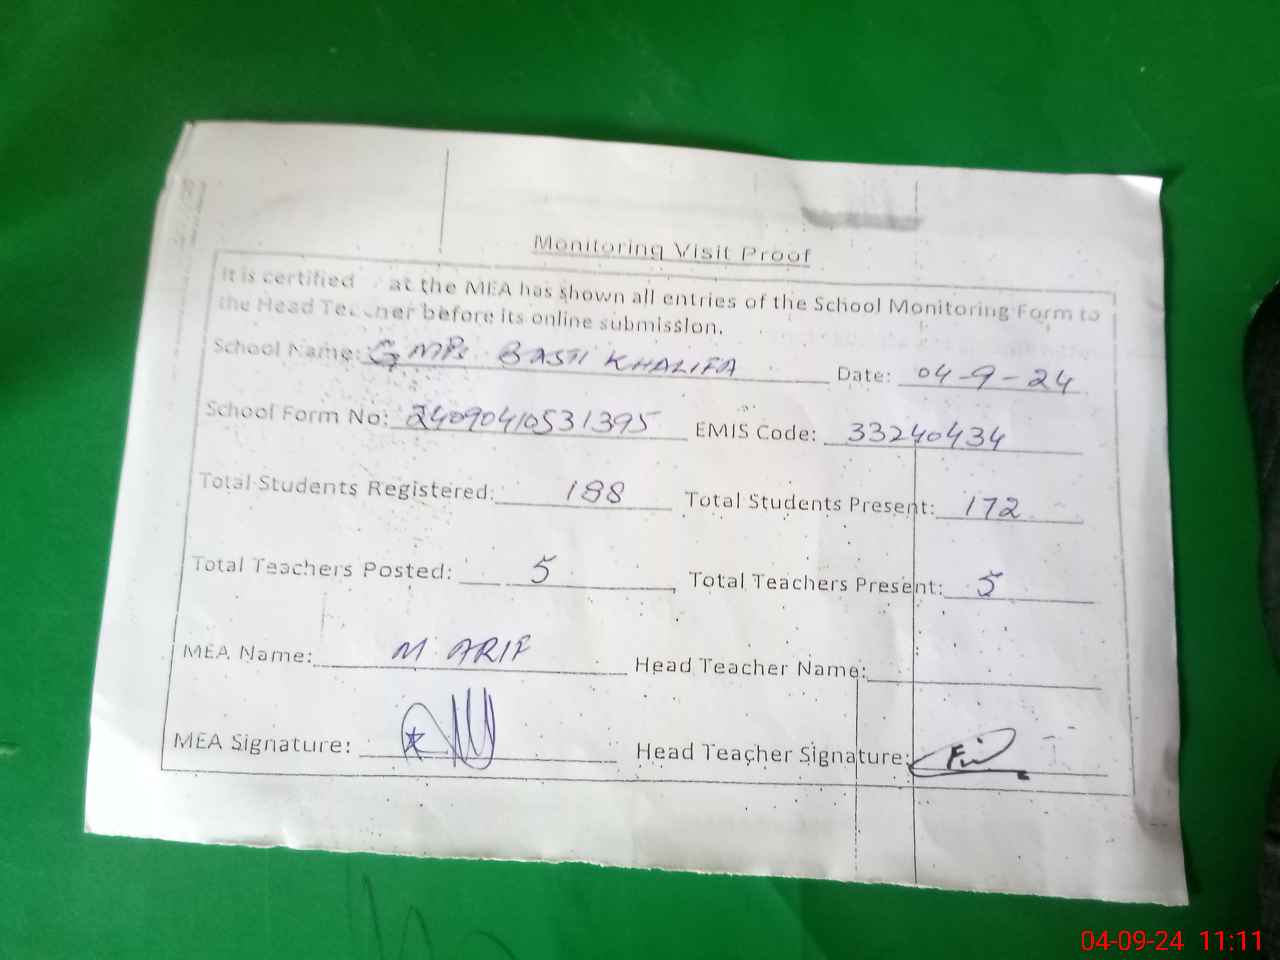 Monitoring Visit Proof
It is certified at the MEA has shown all entries of the School Monitoring Form to
the Head Teacher before its online submission.
School Name: GMPS BASTI KHALIFA Date: 04-9-24
School Form No: 24090410531395 EMIS Code: 33240434
Total Students Registered: 188 Total Students Present: 172
Total Teachers Posted: 5 Total Teachers Present: 5
MEA Name: M ARIF Head Teacher Name:
MEA Signature: Head Teacher Signature:
04-09-24 11:11